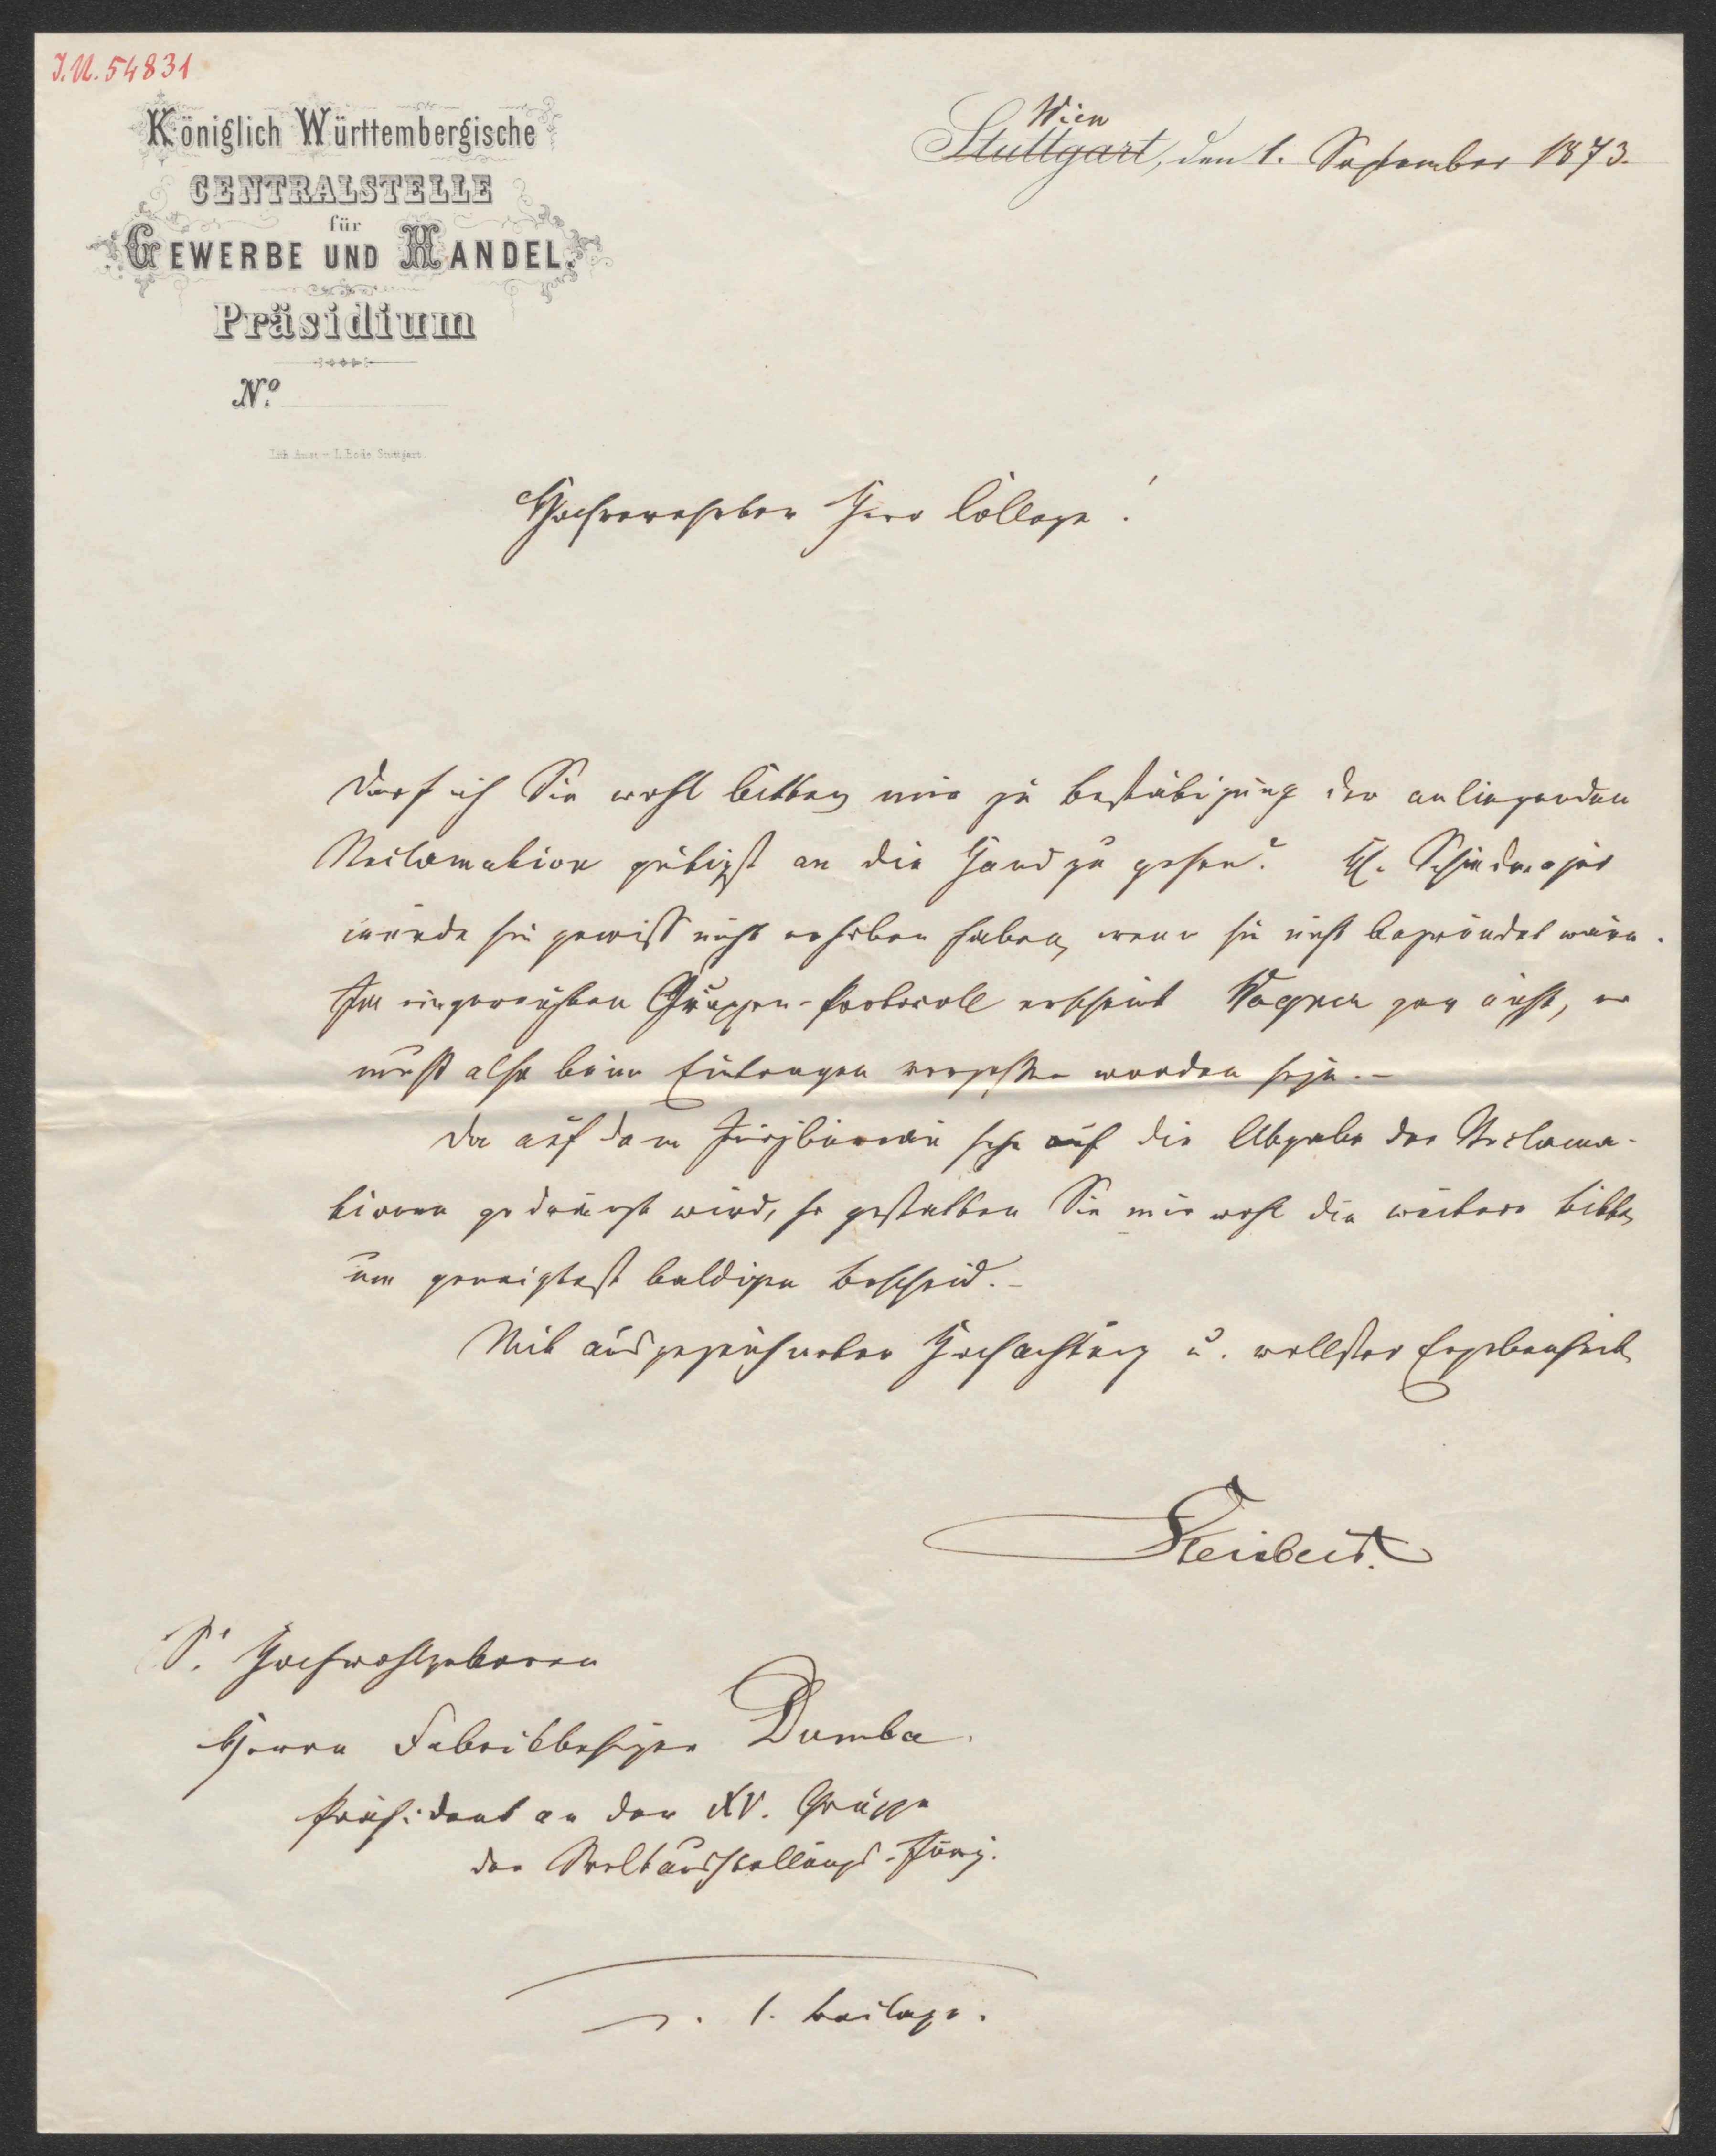 I.N. 54831
Königlich Württembergische
CENTRALSTELLE
für
GEWERBE UND HANDEL.
Präsidium
No.
Lith. Anst. v. L. Bode, Stuttgart.
Wien
Stuttgart, den 1. September 1873.
Hochverehrter Herr College!
Darf ich Sie wohl bitten mir zu Bestätigung der anliegenden
Reclamation gütigst an die Hand zu gehen? H. Schiedmajer
würde sie gewiß nicht erhoben haben, wenn sie nicht begründet wäre.
Im eingereichten Gruppen-Protocoll erscheint Wagner gar nicht, er
muß also beim Eintragen vergessen worden sein.–
Da auf dem Jurybureau sehr auf die Abgabe der Reclama-
tionen gedrängt wird, so gestatten Sie mir wohl die weitere Bitte
um geneigtest baldigen Bescheid.–
Mit ausgezeichneter Hochachtung u. vollster Ergebenheit
Steinbeis.
Sr Hochwohlgeboren
Herrn Fabrikbesitzer Dumba.
Präsident an der XV. Gruppe
der Weltausstellungs-Jury.
1. Beilage.